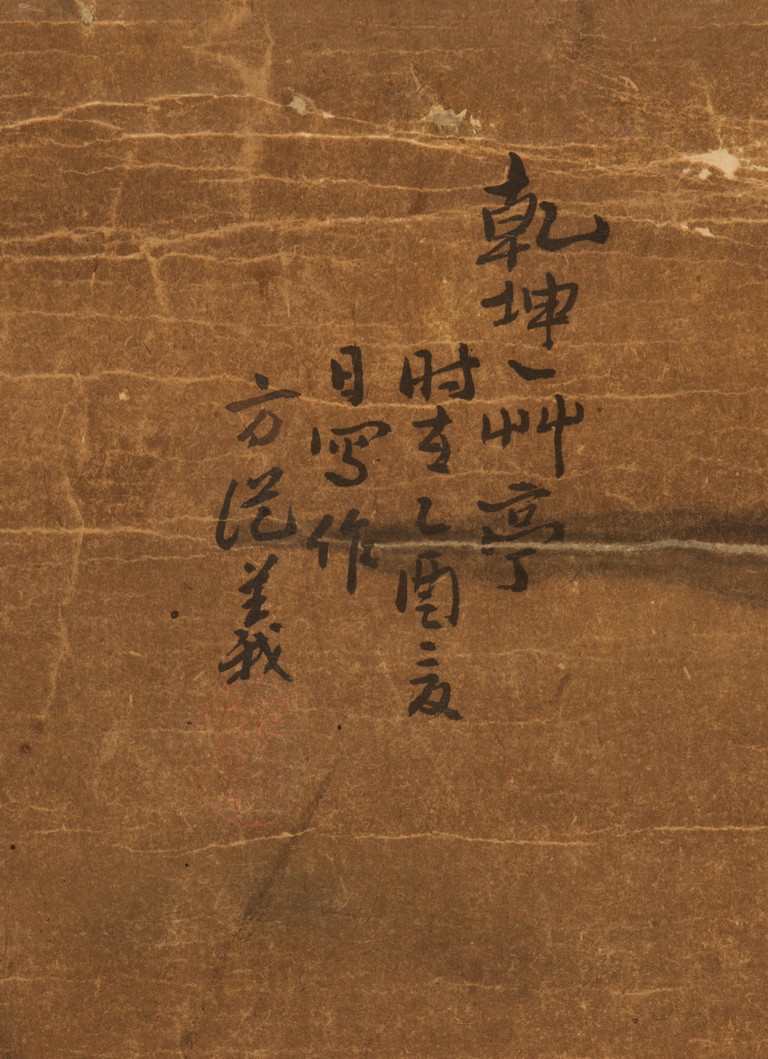 乾坤一艸亭
时在乙酉夏
日寫作
方從義